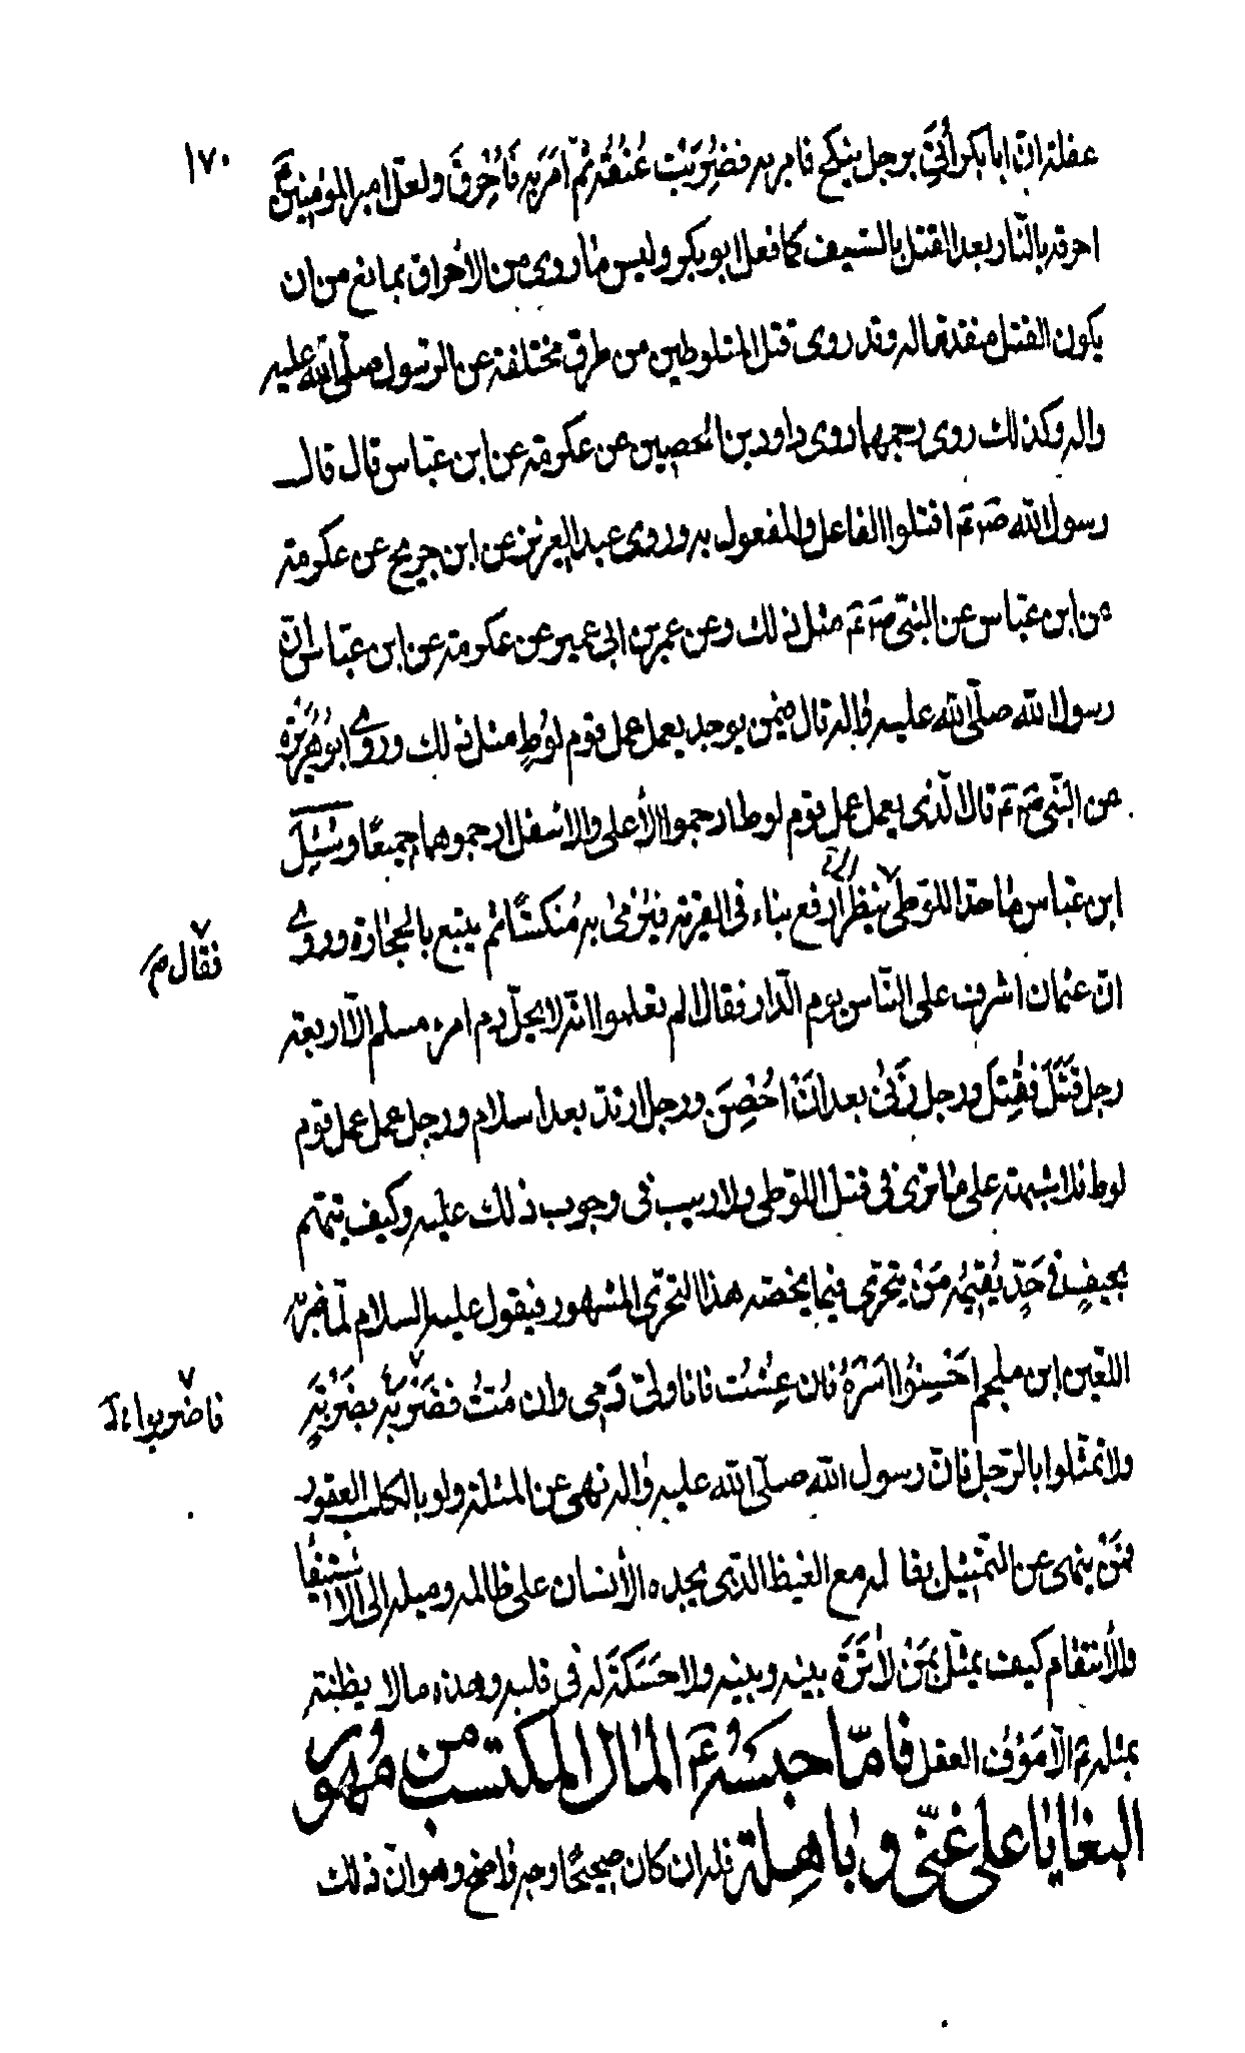 ١٧٠
عفلة انّ ابا بكر أُتِيَ برجل ينكح فامر به فضُرِبَتْ عُنُقُه ثمّ اَمَرَ به فَاُحْرِقَ ولعلّ امير المؤمنين ع
احرقه بالنّار بعد القتل بالسّيف كما فعل ابو بكر وليس ما روى من الأحراق بمانع من ان
يكون القتل متقدّما له وقد روى قتل المتلوطين من طرق مختلفة عن الرّسول صلّى الله عليه
واله وكذلك روى رجمهما روى داود بن الحصين عن عكرمة عن ابن عبّاس قال قال
رسول الله ص م اقتلوا الفاعل والمفعول به وروى عبد العزيز عن ابن جريح عن عكرمة
عن ابن عبّاس عن النبّى ص م مثل ذلك وعن عمر بن ابى عمير عن عكرمة عن ابن عبّاس انّ
رسول الله صلّى الله عليه واله قال فيمن يوجد يعمل عمل قوم لوُطٍ مثل ذلك وروى ابو هُرَيْرَة
عن النبّى ص م قال الّذى يعمل عمل قوم لوط ارجموا الأعلى والاسفل ارجموهما جميعًا وَسُئِلَ
ابن عبّاس ما حدّ اللوّطى ينظر ارفع بناء فى القرية فيُرْمىٰ به مُنكسًا ثم يتبع بالحجارة وروى
فقال م
انّ عثمان اشرف على النّاس يوم الدّار فقال الم تعلموا انّه لا يحلّ دم امرء مسلم الّا اربعة
رجل قَتَلَ فقُتِلَ ورجل زَنىٰ بعد انَْ احُْصِنَ ورجل ارتدّ بعد اسلام ورجل عمل عمل قوم
لوط فلا شبهة على ما ترى فى قتل اللوّطى ولا ريب فى وجوب ذلك عليه وكيف يتّهم
بحيفٍ فى حَدٍّ يُقيمُه مَنْ يتحرّى فيما يخصّه هذا التحرّى المشهور فيقول عليه السلام لمّا ضربه
اللعّين ابن ملجم اَحْسِنُوا اَسْرَهُ فان عِشْتُ فانا ولىّ دَمى وان مُتُّ فضَرْبَة بِضَرْبَةٍ
فاضربوا
ولا تمثّلوا بالرّجل فانّ رسول الله صلّى الله عليه واله نهى عن المثلة ولو بالكلب العقور
فمَنْ ينهى عن التمّثيل بقاتله مع الغيظ الّذى يجده الأنسان على ظالمه وميله الى الاستيفا
والأنتقام كيف يمثّل بمَنْ لا تَرَةَ بينه وبينه ولا حَسَكَةَ له فى قلبه وهذه ما لا يظنّه
بمثله ع الّا مَؤفُ العقل فامّا حبسُه ع المال المكتسب من مهور
البغايا على غنىّ وباهلة فله ان كان صحيحًا وجه واضح وهو انّ ذلك